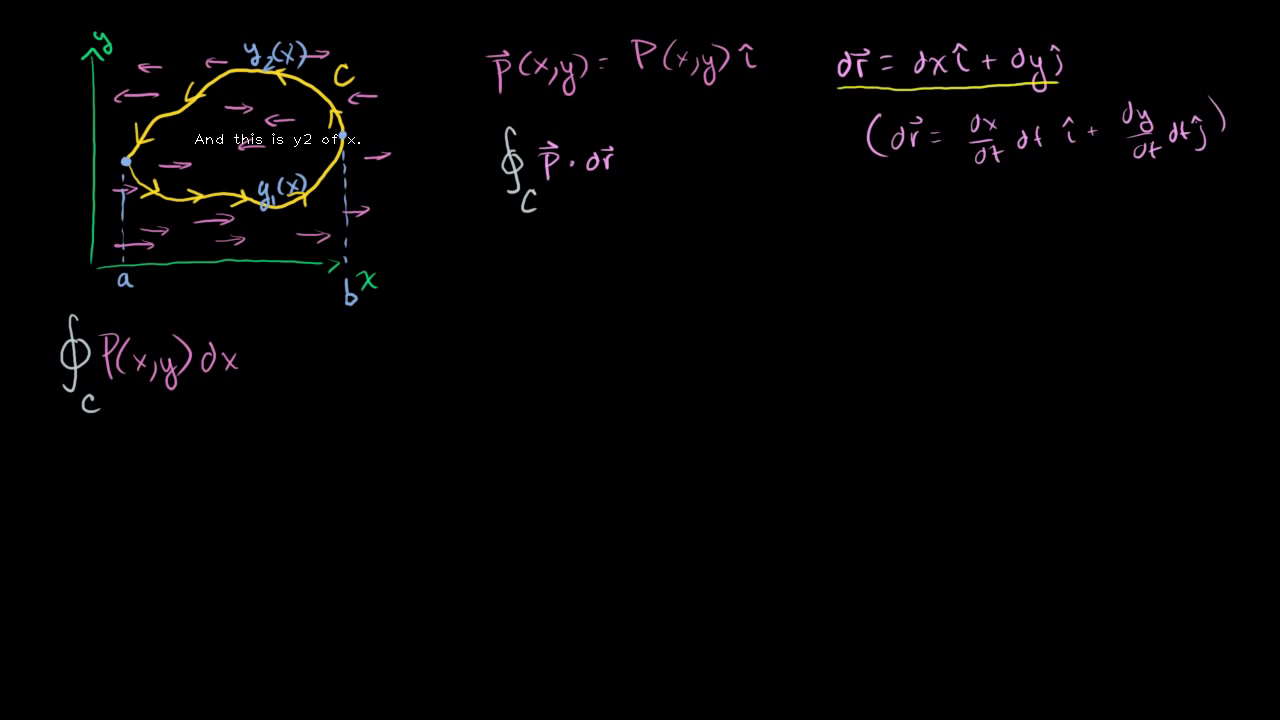 y
y₂(x)
C
And this is y2 of x.
y₁(x)
a
b
x
∮_C P(x,y) dx
p⃗(x,y) = P(x,y) î
∮_C p⃗ · dr⃗
dr⃗ = dx î + dy ĵ
(dr⃗ = dx/dt dt î + dy/dt dt ĵ)